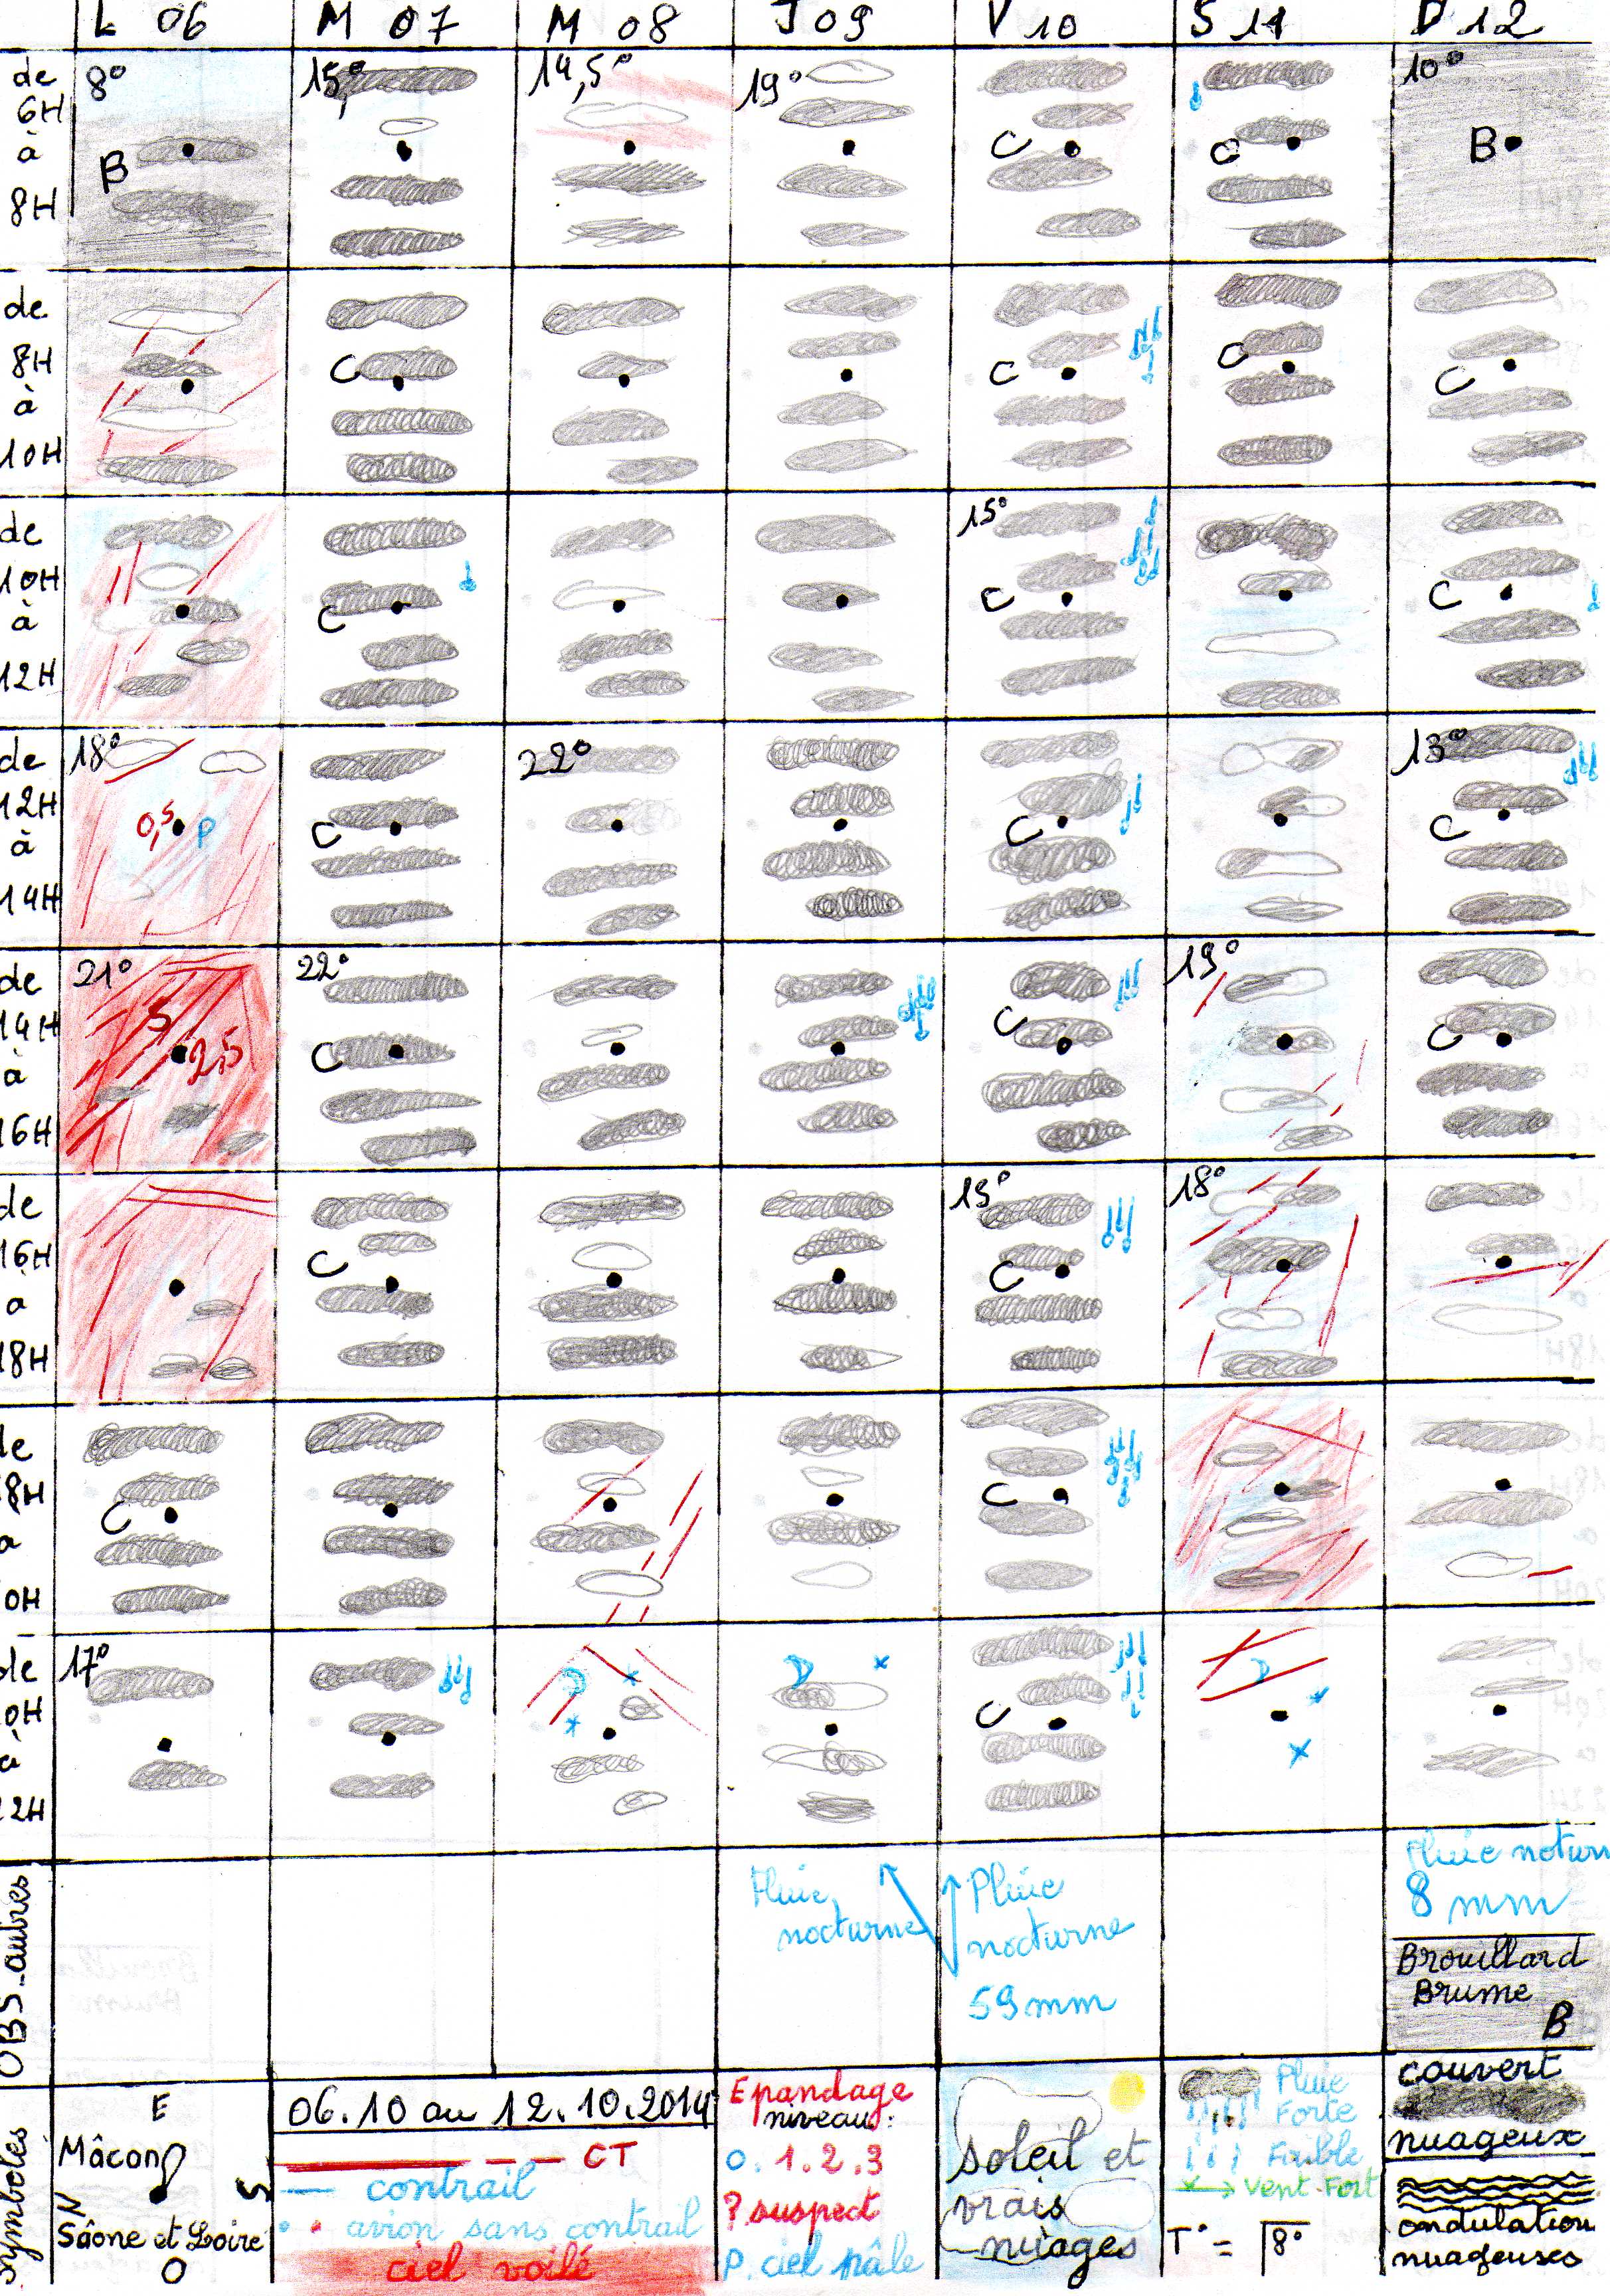 L 06 M 07 M 08 J 09 V 10 S 11 D 12
de 6H à 8H
8° 15° 14,5° 19° 10°
B C C B
de 8H à 10H
C C C C
de 10H à 12H
15°
C C C
de 12H à 14H
18° 22° 13°
0,5 P C C C
de 14H à 16H
21° 22° 19°
S 2,5 C C C
de 16H à 18H
15° 18°
C C
de 18H
C C
17°
C
OBS. autres
Pluie nocturne
Pluie nocturne
59 mm
8 mm
Brouillard
Brume
B
Symboles
E
Mâcon
N S
Sâone et Loire
O
06.10 au 12.10.2014
CT
contrail
avion sans contrail
ciel voilé
Epandage
niveau:
0. 1. 2. 3
? suspect
P. ciel pâle
soleil et
vrais
nuages
Pluie
Forte
Faible
Vent Fort
T° = 8°
couvert
nuageux
ondulation
nuageuses